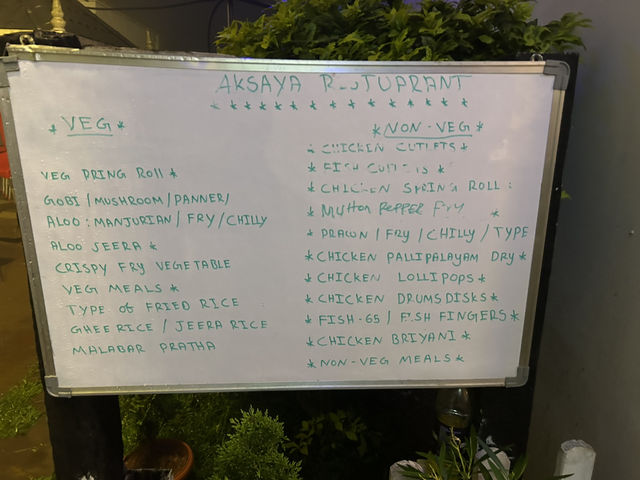 AKSAYA
* * * * * * * * * * * * * * *
* VEG *
VEG PRING ROLL *
GOBI / MUSHROOM / PANNER /
ALOO : MANJURIAN / FRY / CHILLY
ALOO JEERA *
CRISPY FRY VEGETABLE
VEG MEALS *
TYPE of FRIED RICE
GHEE RICE / JEERA RICE
MALABAR PRATHA
* NON-VEG *
* CHICKEN CUTLETS *
* FISH
* CHICKEN SPRING ROLL :
* MUTTON PEPPER FRY *
* PRAWN / FRY / CHILLY / TYPE
* CHICKEN PALLIPALAYAM DRY *
* CHICKEN LOLLIPOPS *
* CHICKEN DRUMSDISKS *
* FISH-65 / FISH FINGERS *
* CHICKEN BRIYANI *
* NON-VEG MEALS *